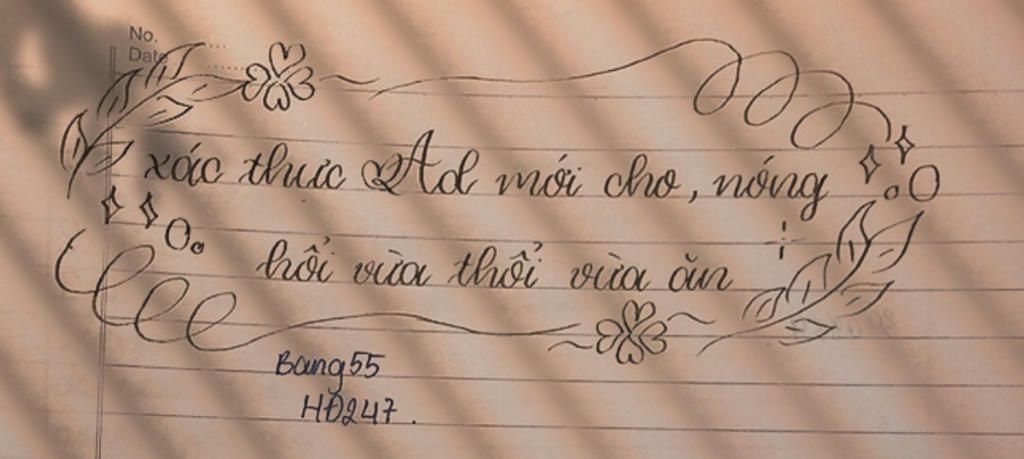 No.
Date
xác thực Ad mới cho, nóng
hổi vừa thổi vừa ăn
Bang55
HĐ247.